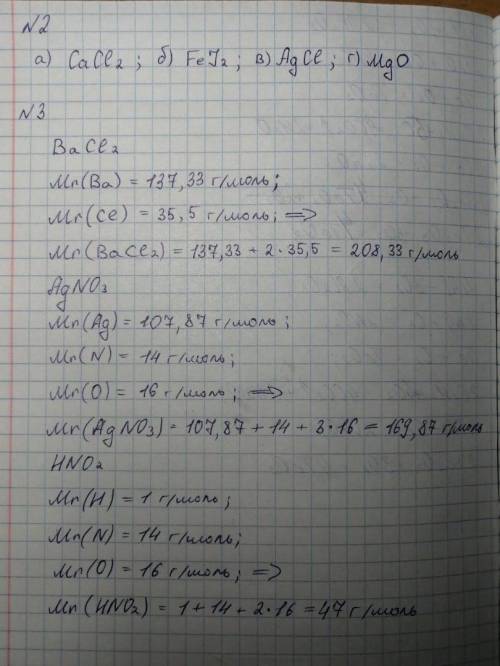 №2
а) CaCl2; б) FeI2; в) AgCl; г) MgO
№3
BaCl2
Mr(Ba) = 137,33 г/моль;
Mr(Cl) = 35,5 г/моль; =>
Mr(BaCl2) = 137,33 + 2·35,5 = 208,33 г/моль
AgNO3
Mr(Ag) = 107,87 г/моль;
Mr(N) = 14 г/моль;
Mr(O) = 16 г/моль; =>
Mr(AgNO3) = 107,87 + 14 + 3·16 = 169,87 г/моль
HNO2
Mr(H) = 1 г/моль;
Mr(N) = 14 г/моль;
Mr(O) = 16 г/моль; =>
Mr(HNO2) = 1 + 14 + 2·16 = 47 г/моль